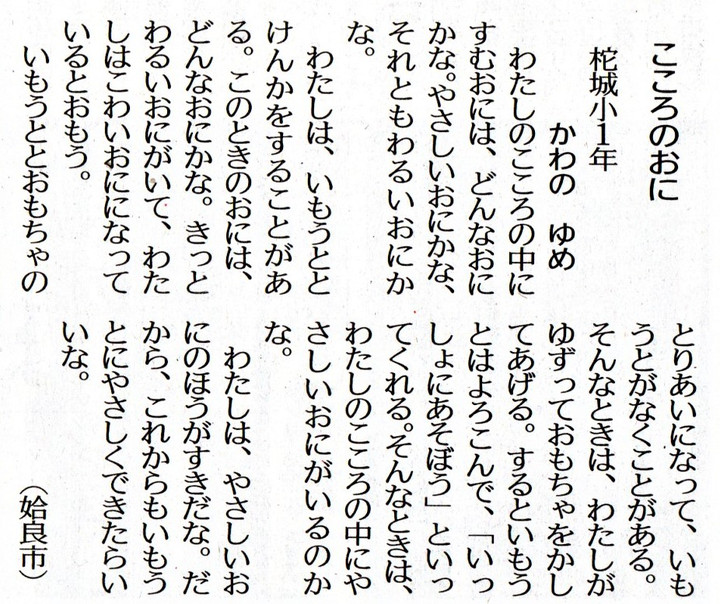 こころのおに
柁城小1年
かわの　ゆめ
　わたしのこころの中に
すむおには、どんなおに
かな。やさしいおにかな、
それともわるいおにか
な。
　わたしは、いもうとと
けんかをすることがあ
る。このときのおには、
どんなおにかな。きっと
わるいおにがいて、わた
しはこわいおにになって
いるとおもう。
　いもうととおもちゃの
とりあいになって、いも
うとがなくことがある。
そんなときは、わたしが
ゆずっておもちゃをかし
てあげる。するといもう
とはよろこんで、「いっ
しょにあそぼう」といっ
てくれる。そんなときは、
わたしのこころの中にや
さしいおにがいるのか
な。
　わたしは、やさしいお
にのほうがすきだな。だ
から、これからもいもう
とにやさしくできたらい
いな。
（姶良市）